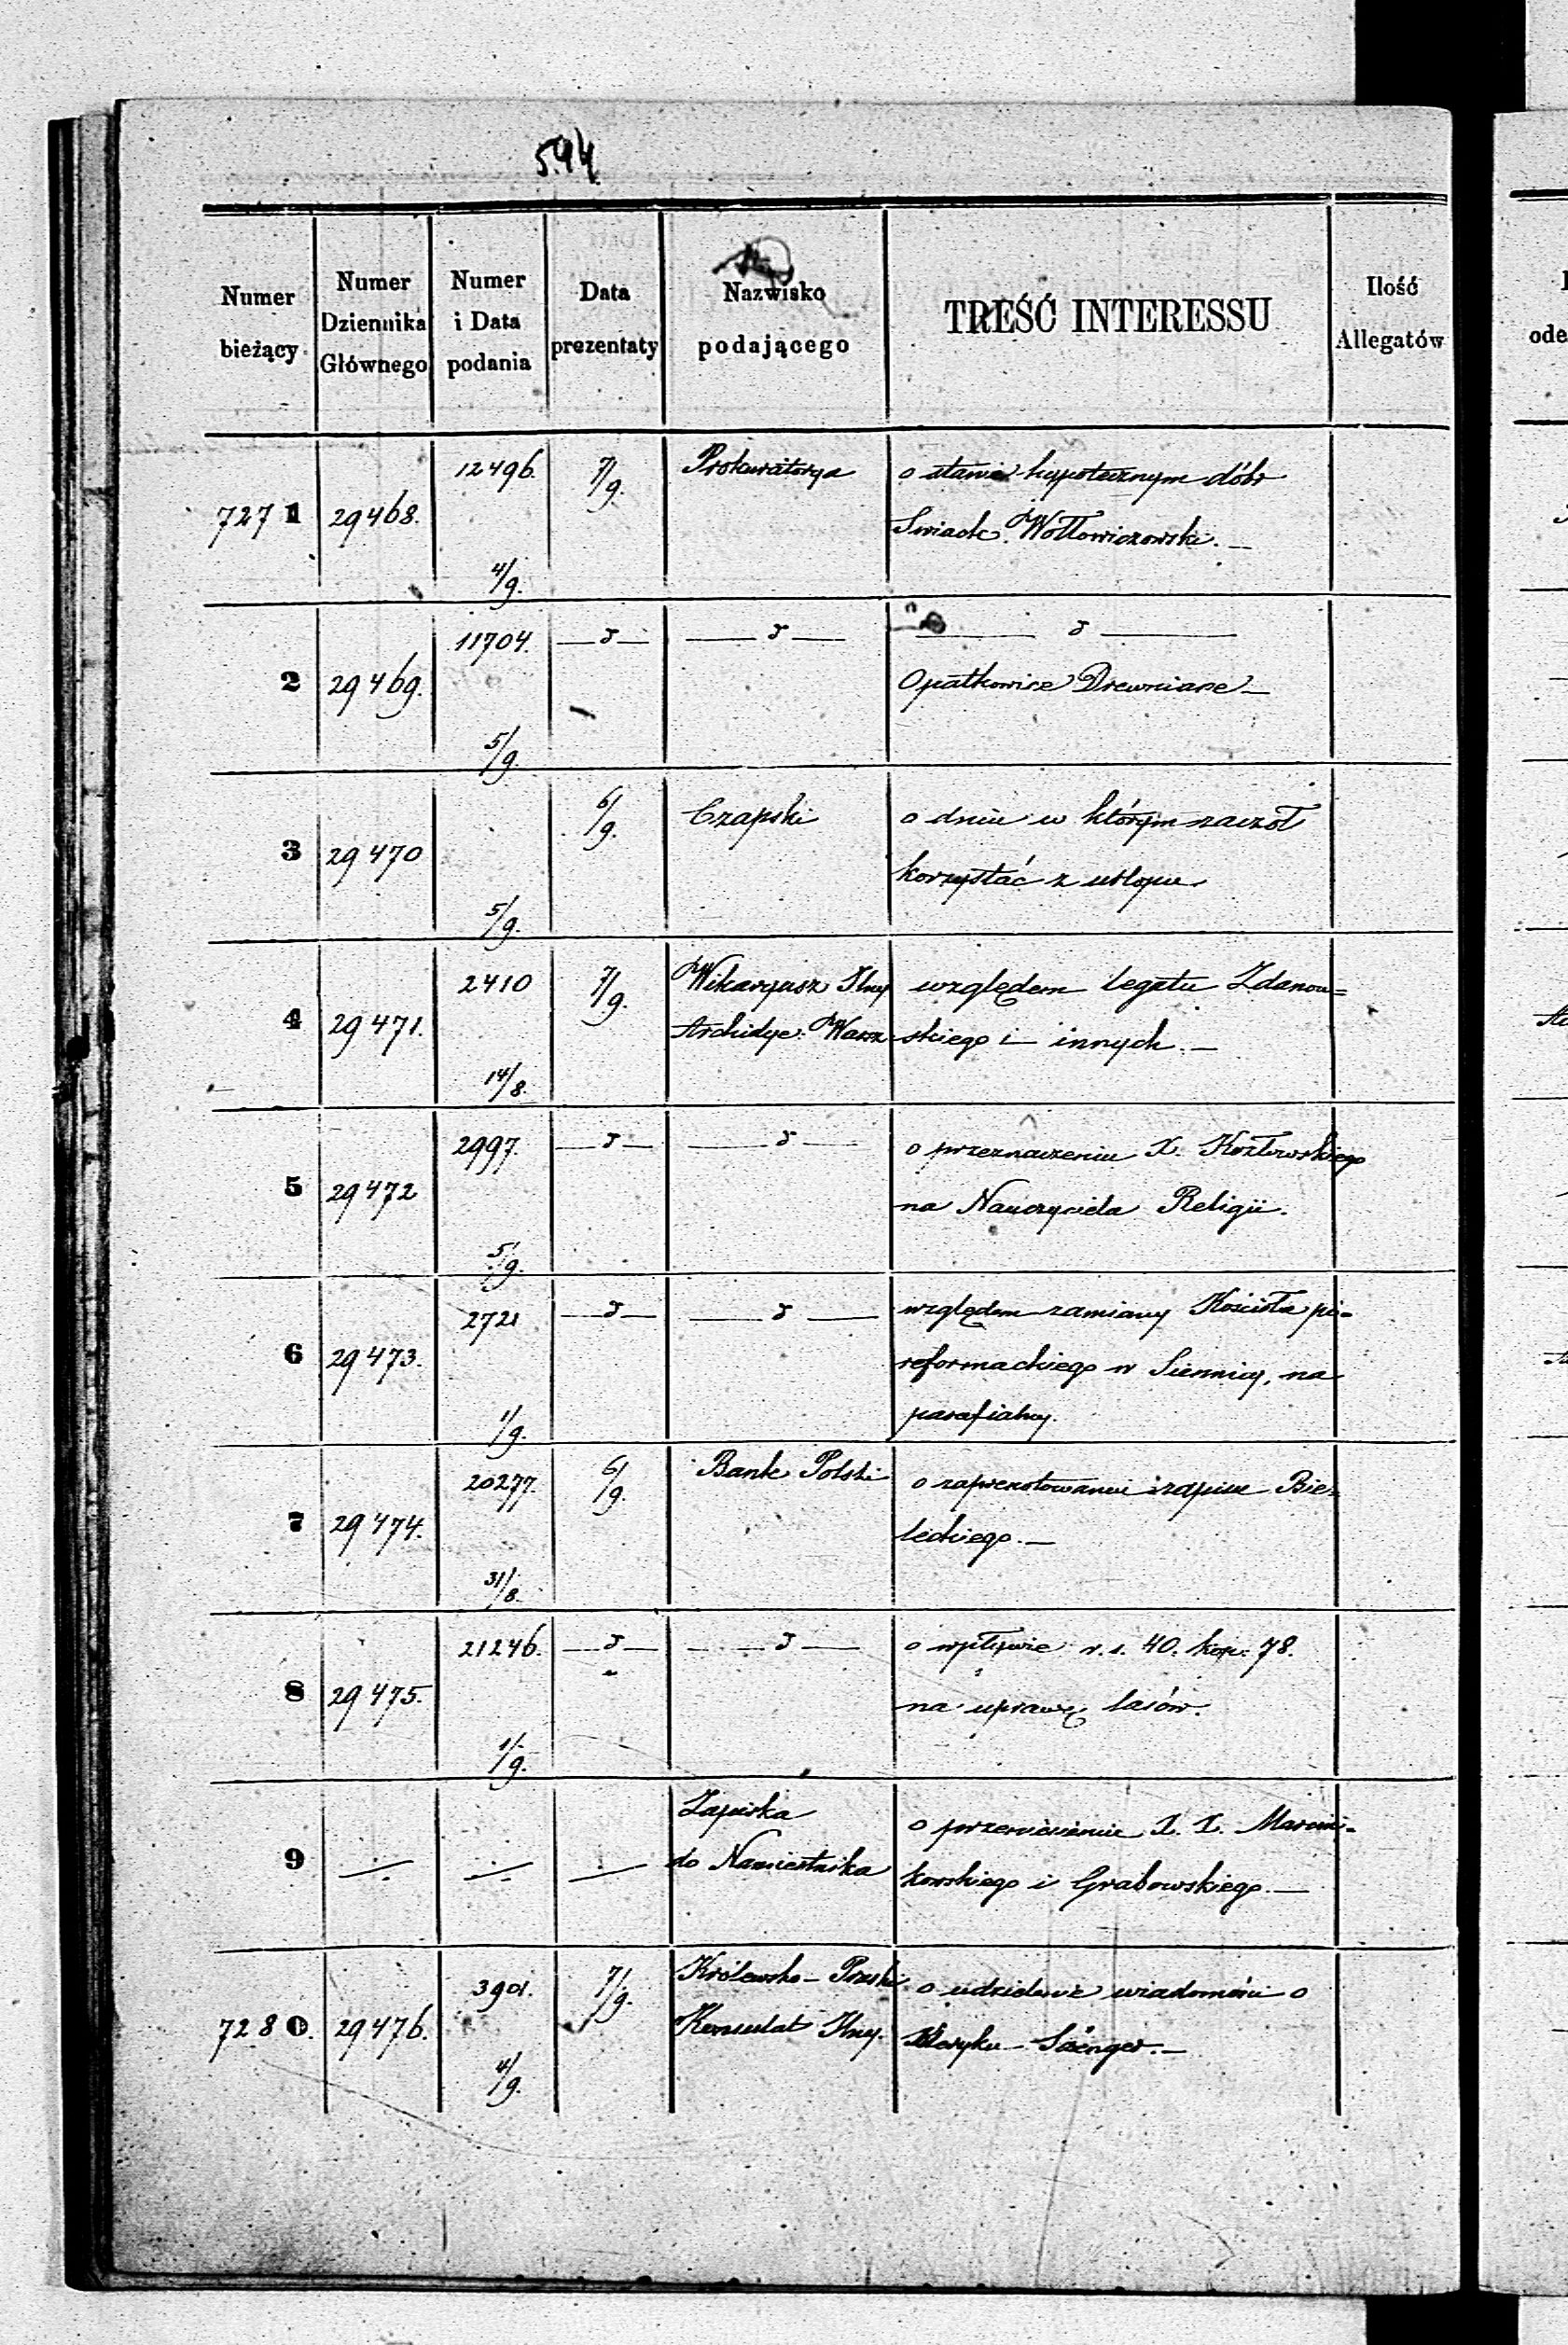 594
Numer bieżący
Numer Dziennika Głównego
Numer i Data podania
Data prezentaty
Nazwisko podającego
TREŚĆ INTERESSU
Ilość Allegatów
7271 29468. 12496. 4/9. 7/9. Prokuratorya o stanie hypotecznym dóbr
Swiack Wołłowiczowski. —
2 29469. 11704. 5/9. — d — — d — — d —
Opatkowice Drewniane —
3 29470 5/9. 6/9. Czapski o dniu w którym zaczoł
korzystać z urlopu.
4 29471. 2410 14/8. 7/9. Wikaryusz Jlny względem legatu Zdanow=
Archidyc. Warsz. skiego i innych. —
5 29472 2997. 5/9. — d — — d — o przeznaczeniu X. Kozłowskiego
na Nauczyciela Religii.
6 29473. 2721 1/9. — d — — d — względem zamiany Kościoła po=
reformackiego w Siennicy, na
parafialny.
7 29474. 20277. 31/8. 6/9. Bank Polski o zaprenotowaniu zapisu Bie=
leckiego. —
8 29475. 21246. 1/9. — d — — d — o wpływie r. s. 40. kop. 78.
na uprawę lasów.
9 Zapiska o przeniesienie X. X. Marcin=
do Namiestnika kowskiego i Grabowskiego. —
7280. 29476. 3901. 4/9. 7/9. Królewsko - Pruski o udzielenie wiadomości o
Konsulat Jlny. Saenger. —